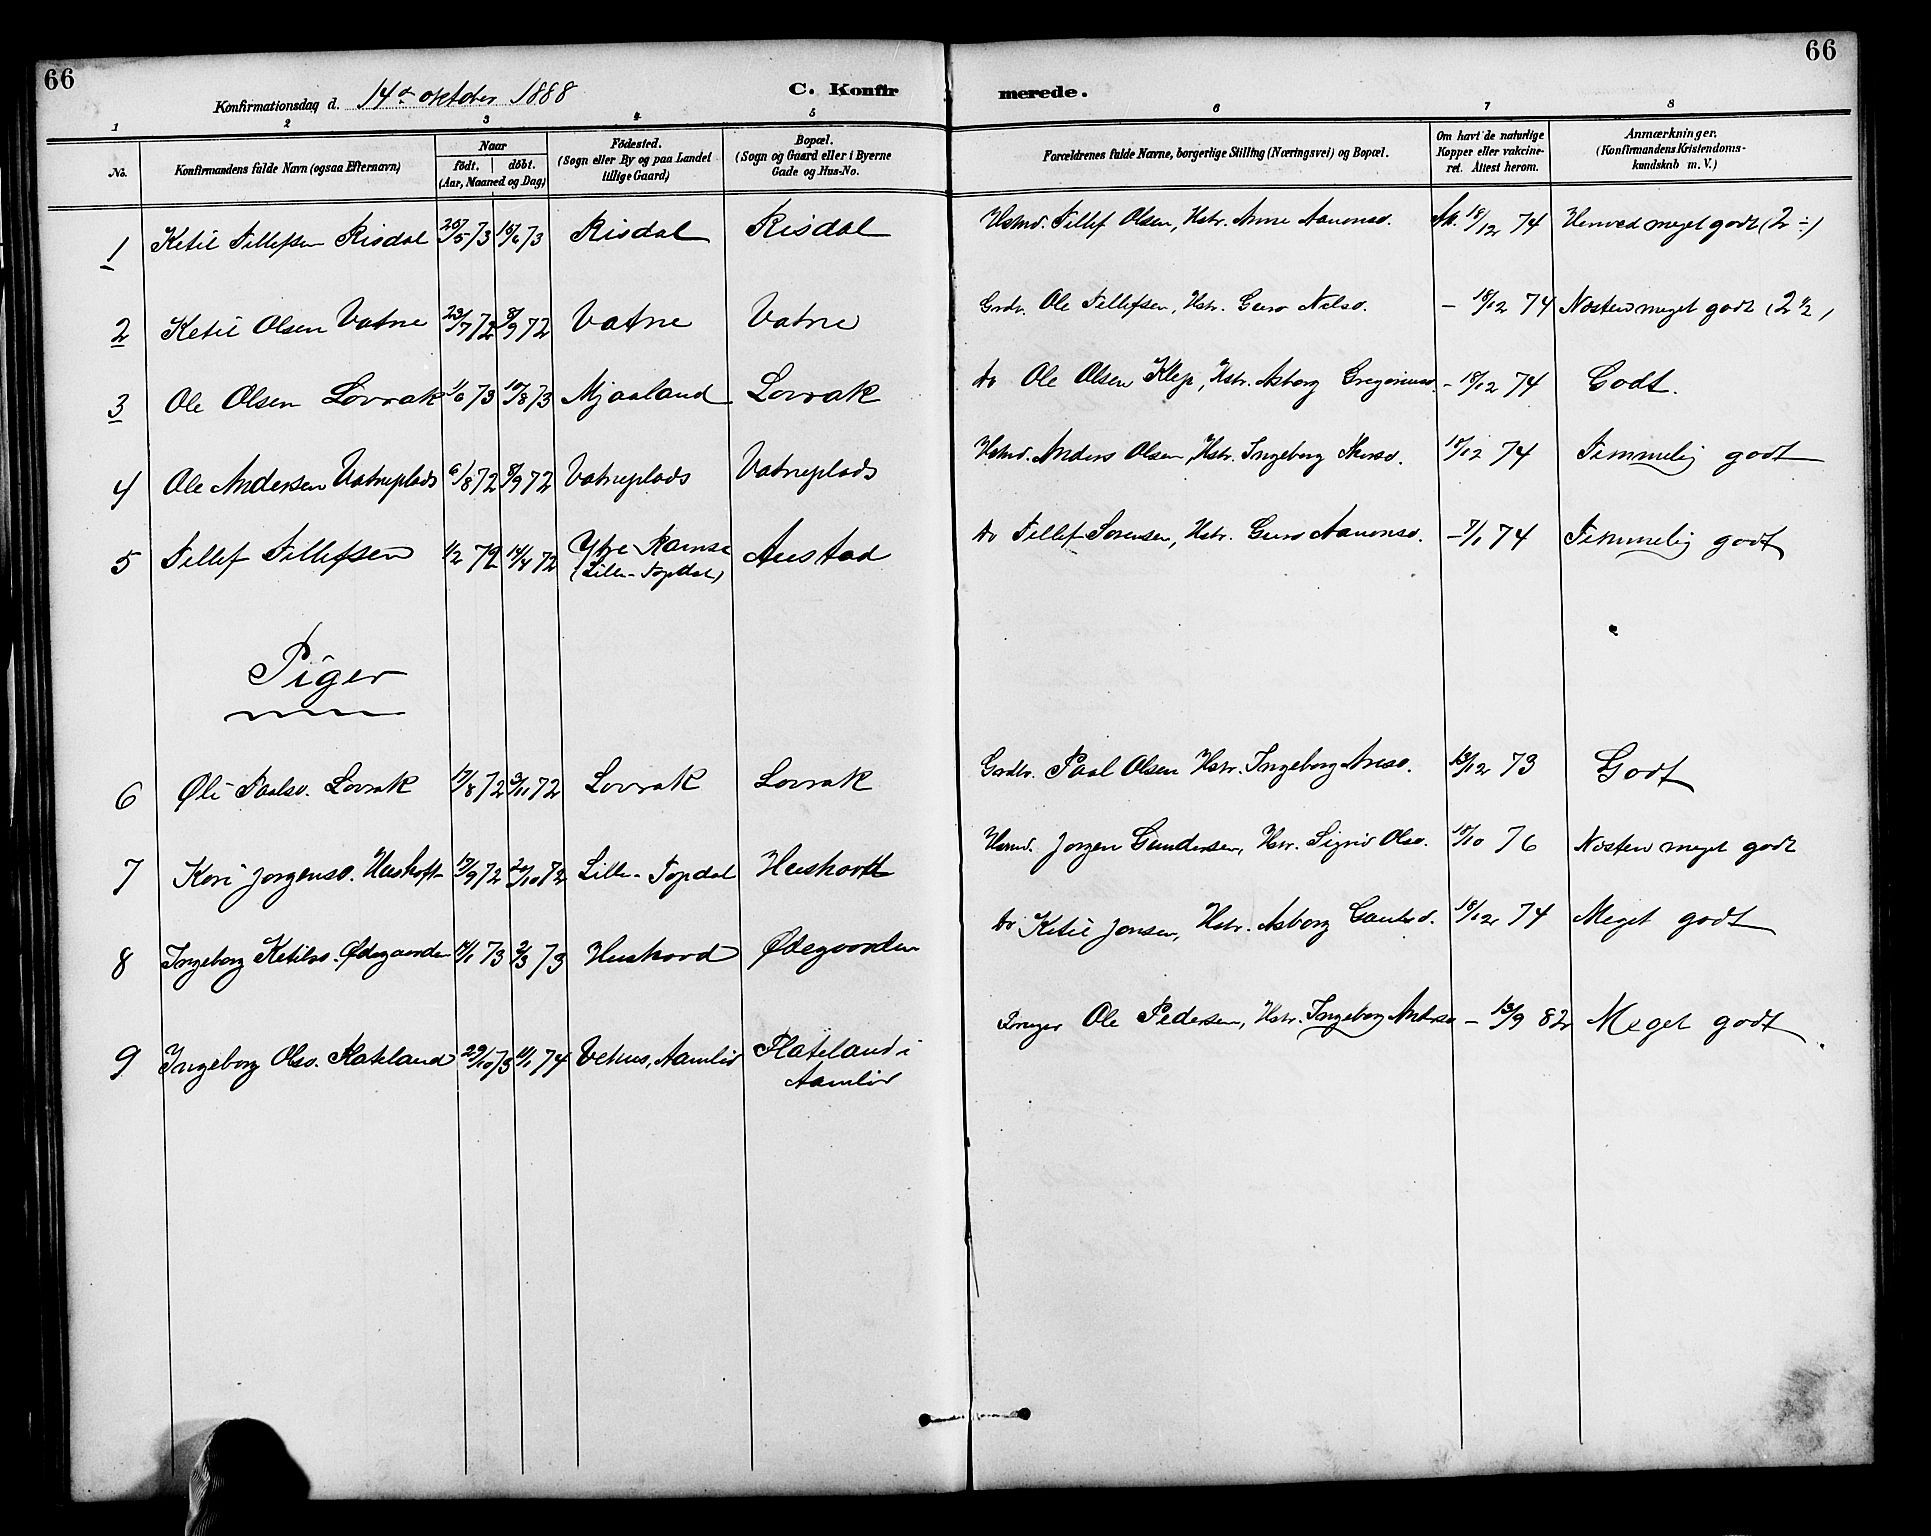 66
66
Konfirmationsdag d. 14de oktober 1888
C. Konfir merede.
1 2 3 4 5 6 7 8
No.
Konfirmandens fulde Navn (ogsaa Efternavn)
Naar
født. døbt.
(Aar, Maaned og Dag)
Fødested.
(Sogn eller By og paa Landet
tillige Gaard)
Bopæl.
(Sogn og Gaard eller i Byerne
Gade og Hus-No.
Forældrenes fulde Navne, borgerlige Stilling (Næringsvei) og Bopæl.
Om havt de naturlige
Kopper eller vakcine-
ret. Attest herom.
Anmærkninger.
(Konfirmandens Kristendoms-
kundskab m. V.)
1 Ketil Tellefsen Risdal 20/5 73 15/6 73 Risdal Risdal Husmd. Tellef Olsen, Hstr. Anne Aanonsd. 18/12 74 Henved meget godt (2 ÷)
2 Ketil Olsen Vatne 23/7 72 8/9 72 Vatne Vatne Gardbr. Ole Tellefsen, Hstr. Guro Nilsd. - 18/12 74 Næsten meget godt (2 1/2)
3 Ole Olsen Lovrak 1/6 73 10/8 73 Mjaaland Lovrak Do Ole Olsen Klep, Hstr. Asborg Gregoriusd. - 18/12 74 Godt.
4 Ole Andersen Vatneplads 6/8 72 8/9 72 Vatneplads Vatneplads Husmd. Anders Olsen, Hstr. Ingeborg 18/12 74 Temmelig godt
5 Tellef Tellefsen 1/2 72 14/4 72 Ytre Ramse Austad Do Tellef Sørensen, Hstr. Guro Aanonsd. - 7/1 74 Temmelig godt
(Lille-Topdal)
Piger
6 Øli Paalsd. Lovrak 17/8 72 3/11 72 Lovrak Lovrak Gardbr. Paal Olsen Hstr. Ingeborg Aresd. 13/12 73 Godt
7 Kari Jørgensd. 17/9 72 20/10 72 Lille-Topdal Jørgen Gundersen, Hstr. Sigrid Olsd. 18/10 76 Næsten meget godt
8 Ingeborg Ketilsd. Ødegaarden 14/1 73 2/3 73 Huskard Ødegaarden Do Ketil Jensen, Hstr. Asborg 18/12 74 Meget godt
9 Ingeborg Olsd. Flateland 29/10 73 11/1 74 Vehus, Aamlid Flateland i Bruger Ole Pedersen, Hstr. Ingeborg Andersd. - 13/9 82 Meget godt
Aamlid